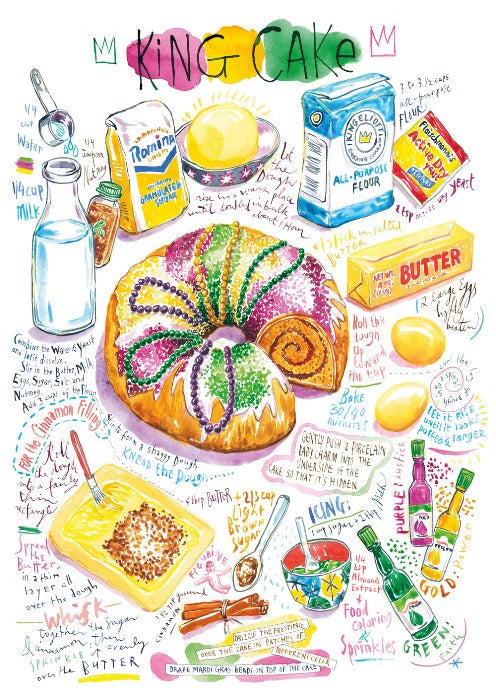 KiNG CAKe
1/4
cup
Water
1/4 cup
MILK
1/4
teaspoon
Nutmeg
Domino
GRANULATED
SUGAR
Let
the
Dough
rise in a warm place
until doubled in bulk
about 1 Hour
KING
ALL-PURPOSE
FLOUR
3 to 3 1/2 cups
all-purpose
FLOUR
Fleischmann's
Active Dry
Yeast
yeast
1 stick unsalted
BUTTER
NET WT.
BUTTER
(2 Large Eggs
lightly
beaten)
Combine the Water & Yeast
and let it dissolve.
Stir in the Butter, Milk,
Eggs, Sugar, Salt and
Nutmeg.
Add 3 cups of the Flour
until it
forms a shaggy Dough.
KNEAD the Dough......
Roll the
dough
up
toward
the top
Bake
30/40
minutes
LET iT RiSE
until it looks
puffed &
larger
GENTLY PUSH A PORCELAIN
BABY CHARM INTO THE
UNDERSIDE OF THE
CAKE SO THAT IT'S HIDDEN.
FOR the Cinnamon Filling:
Roll
the dough
into a fairly
thin
rectangle
Spread
the
Butter
in a thin
layer all
over the dough
Whisk
together the Sugar
& cinnamon then
SPRINKLE it evenly
over the BUTTER
BUTTER
+ 2/3 cup
Light
Brown
Sugar
FIGURINE
1/2 tsp ground
CINNAMON
ICING:
1 cup Sugar + 2 tbsp Milk
1/4
tsp
Almond
Extract
+
Food
coloring
&
Sprinkles
PURPLE: Justice
GOLD: Power
GREEN:
Faith
DRIZZLE THE FROSTING
OVER THE CAKE IN PATCHES OF
DIFFERENT COLOR
DRAPE MARDI GRAS BEADS ON TOP OF THE CAKE